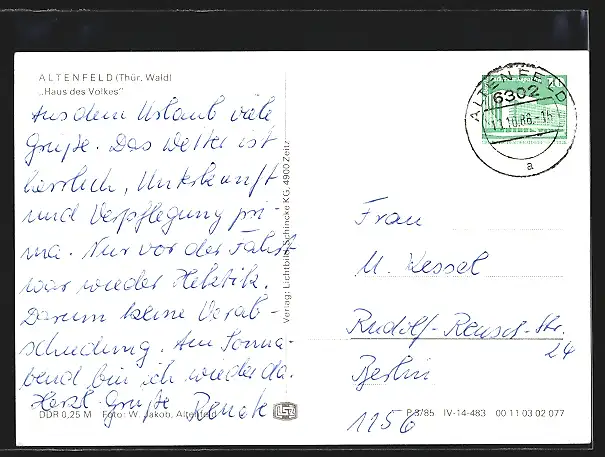 ALTENFELD (Thür. Wald)
„Haus des Volkes"
Aus dem Urlaub viele
Grüße. Das Wetter ist
herrlich, Unterkunft
und Verpflegung pri-
ma. Nur vor der Fahrt
war wieder Hektik.
Darum keine Verab-
schiedung. Am Sonna-
bend bin ich wieder da.
Herzl. Grüße Renate
DDR 0,25 M Foto: W. Jakob, Altenfeld
Verlag: Lichtbild Schincke KG, 4900 Zeitz
ALTENFELD
6302
11.10.86.-15
a
Frau
M. Kessel
Rudolf-Reusch-Str.
24
Berlin
1156
P 3/85 IV-14-483 00 11 03 02 077